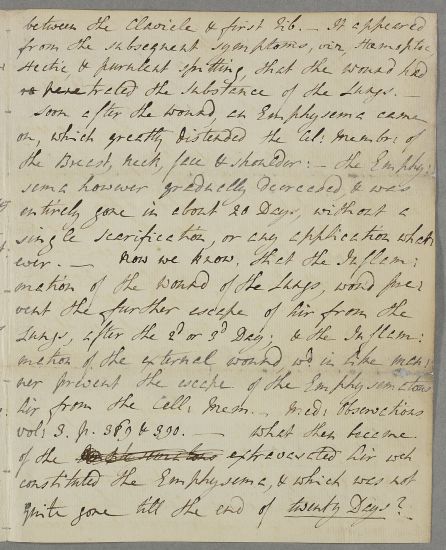 between the Clavicle & first rib. — It appeared
from the subsequent symptoms, viz, Hæmoptoe,
Hectic & purulent spitting, that the wound had
penetrated the substance of the Lungs. —
Soon after the wound, an Emphysema came
on, which greatly distended the Cel: Membr: of
the Breast, Neck, face & shoulder: — the Emphy:
sema however gradually decreased, & was
entirely gone in about 20 Days, without a
single scarification, or any application what:
ever. — Now we know, that the Inflam:
mation of the wound of the Lungs, would pre:
vent the further escape of Air from the
Lungs, after the 2d or 3d Day; & the Inflam:
mation of the external wound wd in like man:
ner prevent the escape of the Emphysematous
Air from the Cell: Mem. — Med: Observations
vol: 3. p. 389 & 390. — What then became
of the extravasated Air wch
constituted the Emphysema, & which was not
quite gone till the end of twenty Days?